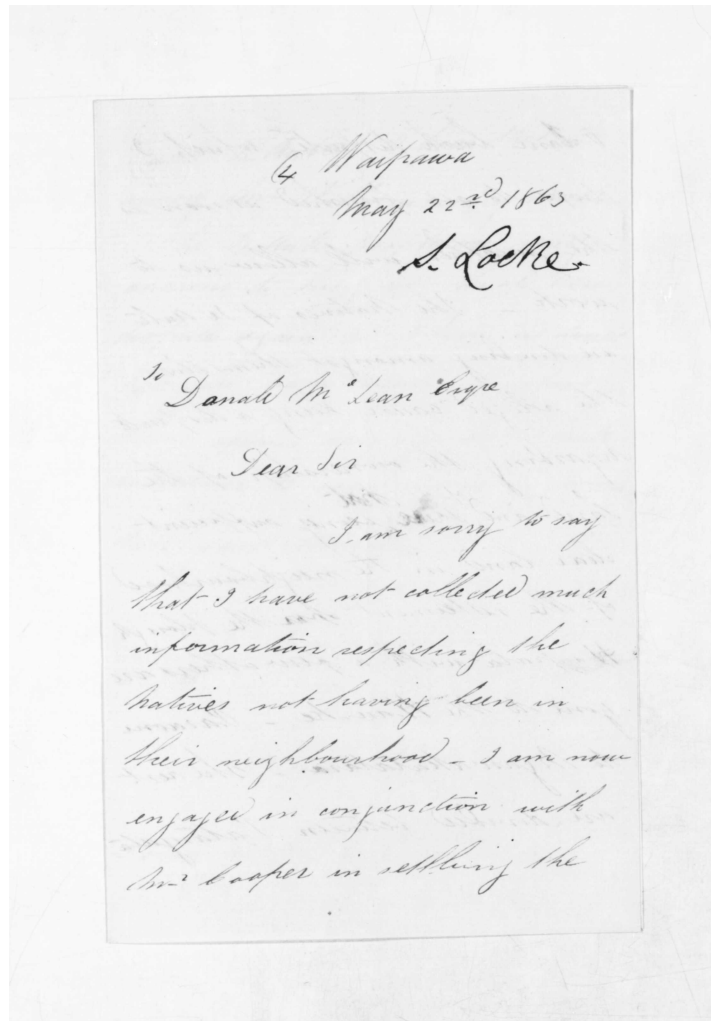 (4 Waipawa
May 22nd 1863
S. Locke.
To
Donald McLean Esqre
Dear Sir
I am sorry to say
that I have not collected much
information respecting the
natives not having been in
their neighbourhood - I am now
engaged in conjunction with
Mr Cooper in settling the